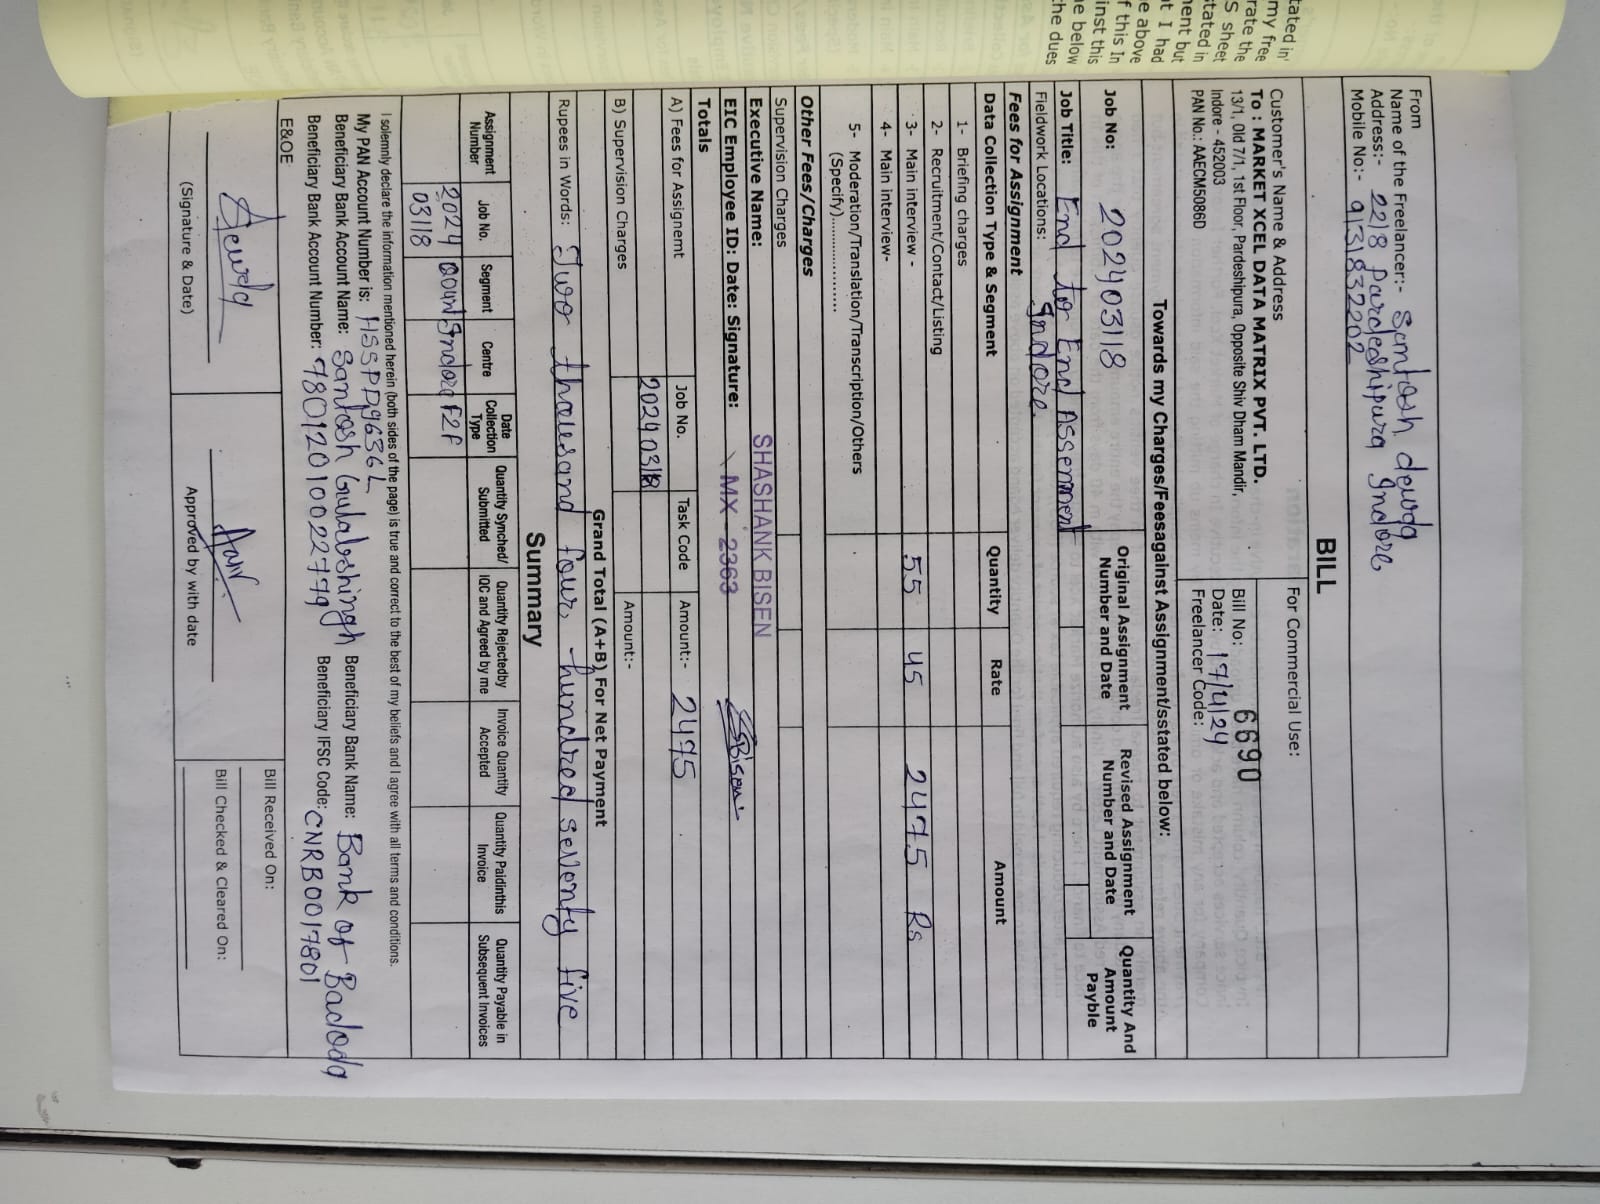 tated in'
my free
rate the
S sheet
tated in
ment but
t I had
e above
f this In
inst this
e below
he dues
From
Name of the Freelancer:- Santosh dewda
Address:- 2218 Pardeshipura Indore
Mobile No:- 9131832202
BILL
Customer's Name & Address
For Commercial Use:
To : MARKET XCEL DATA MATRIX PVT. LTD.
13/1, Old 7/1, 1st Floor, Pardeshipura, Opposite Shiv Dham Mandir,
Indore - 452003
PAN No.: AAECM5086D
Bill No: 6690
Date: 17/4/24
Freelancer Code:
Towards my Charges/Feesagainst Assignment/sstated below:
Job No: 202403118
Original Assignment Number and Date
Revised Assignment Number and Date
Quantity And Amount Payble
Job Title: End to End Assement
Fieldwork Locations: Indore
Fees for Assignment
Data Collection Type & Segment Quantity Rate Amount
1- Briefing charges
2- Recruitment/Contact/Listing
3- Main interview - 55 45 2475 Rs
4- Main interview-
5- Moderation/Translation/Transcription/Others
(Specify)..............
Other Fees/Charges
Supervision Charges
Executive Name: SHASHANK BISEN
EIC Employee ID: Date: Signature: MX - 2363 Bisen
Totals
A) Fees for Assignemt Job No. Task Code Amount:- 2475
202403118
B) Supervision Charges Amount:-
Grand Total (A+B) For Net Payment
Rupees in Words: Two thousand four hundred seventy five
Summary
Assignment Number Job No. Segment Centre Date Collection Type Quantity Synched/ Submitted Quantity Rejectedby IQC and Agreed by me Invoice Quantity Accepted Quantity Paidinthis Invoice Quantity Payable in Subsequent Invoices
2024 Indore F2F
03118
I solemnly declare the information mentioned herein (both sides of the page) is true and correct to the best of my beliefs and I agree with all terms and conditions.
My PAN Account Number is: HSSPD9636L
Beneficiary Bank Account Name: Santosh Gulabshingh Beneficiary Bank Name: Bank of Badoda
Beneficiary Bank Account Number: 9801201002779 Beneficiary IFSC Code: CNRB0017801
E&OE
Dewda
(Signature & Date)
Approved by with date
Bill Received On:
Bill Checked & Cleared On: